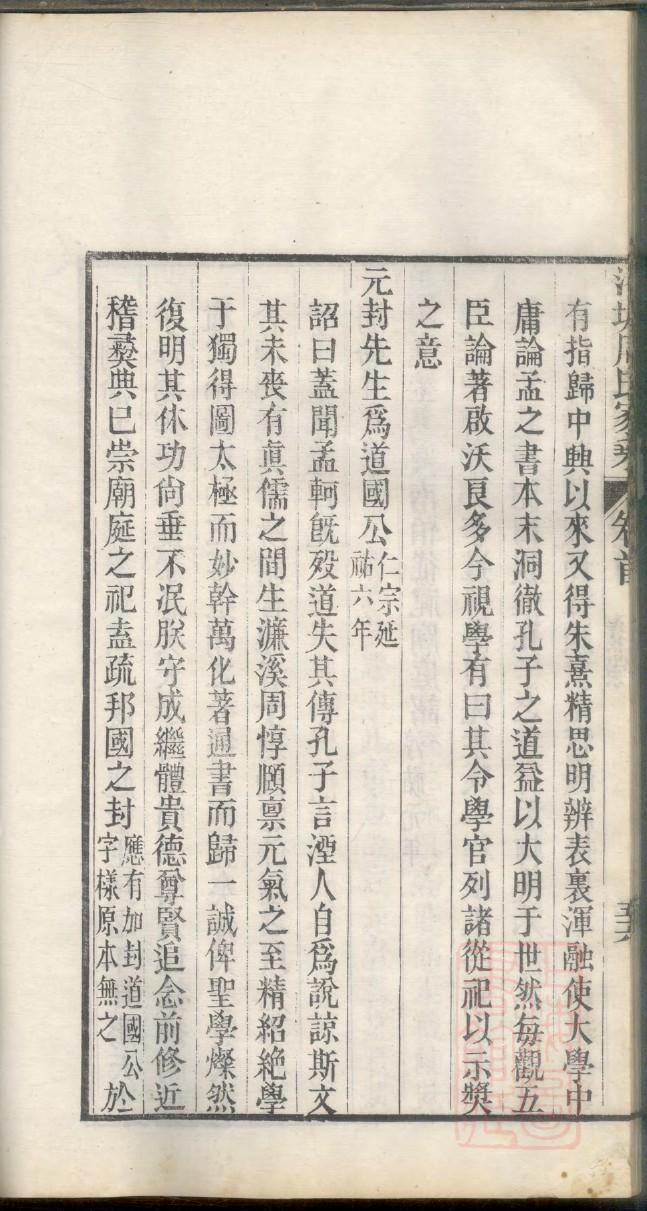 周氏家乘 卷首
有指歸中興以來又得朱熹精思明辨表裏渾融使大學中
庸論孟之書本末洞徹孔子之道益以大明于世然每觀五
臣論著啟沃良多今視學有曰其令學官列諸從祀以示獎
之意
元封先生爲道國公仁宗延
祐六年
詔曰蓋聞孟軻旣殁道失其傳孔子言湮人自爲說諒斯文
其未喪有眞儒之間生濂溪周惇頤禀元氣之至精紹絶學
于獨得圖太極而妙斡萬化著通書而歸一誠俾聖學燦然
復明其休功尙垂不泯朕守成繼體貴德尊賢追念前修近
稽彛典已崇廟庭之祀盍疏邦國之封應有加封道國公
字樣原本無之於